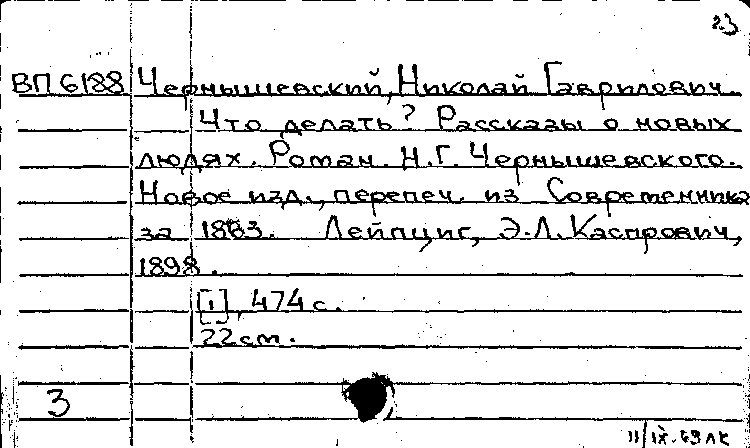 23
ВП6188 Чернышевский, Николай Гаврилович.
Что делать? Рассказы о новых
людях. Роман. Н.Г. Чернышевского.
Новое изд., перепеч. из Современника
за 1863. Лейпциг, Э.Л. Каспрович,
1898.
[1], 474 с.
22 см.
3
11/IX-69 лк